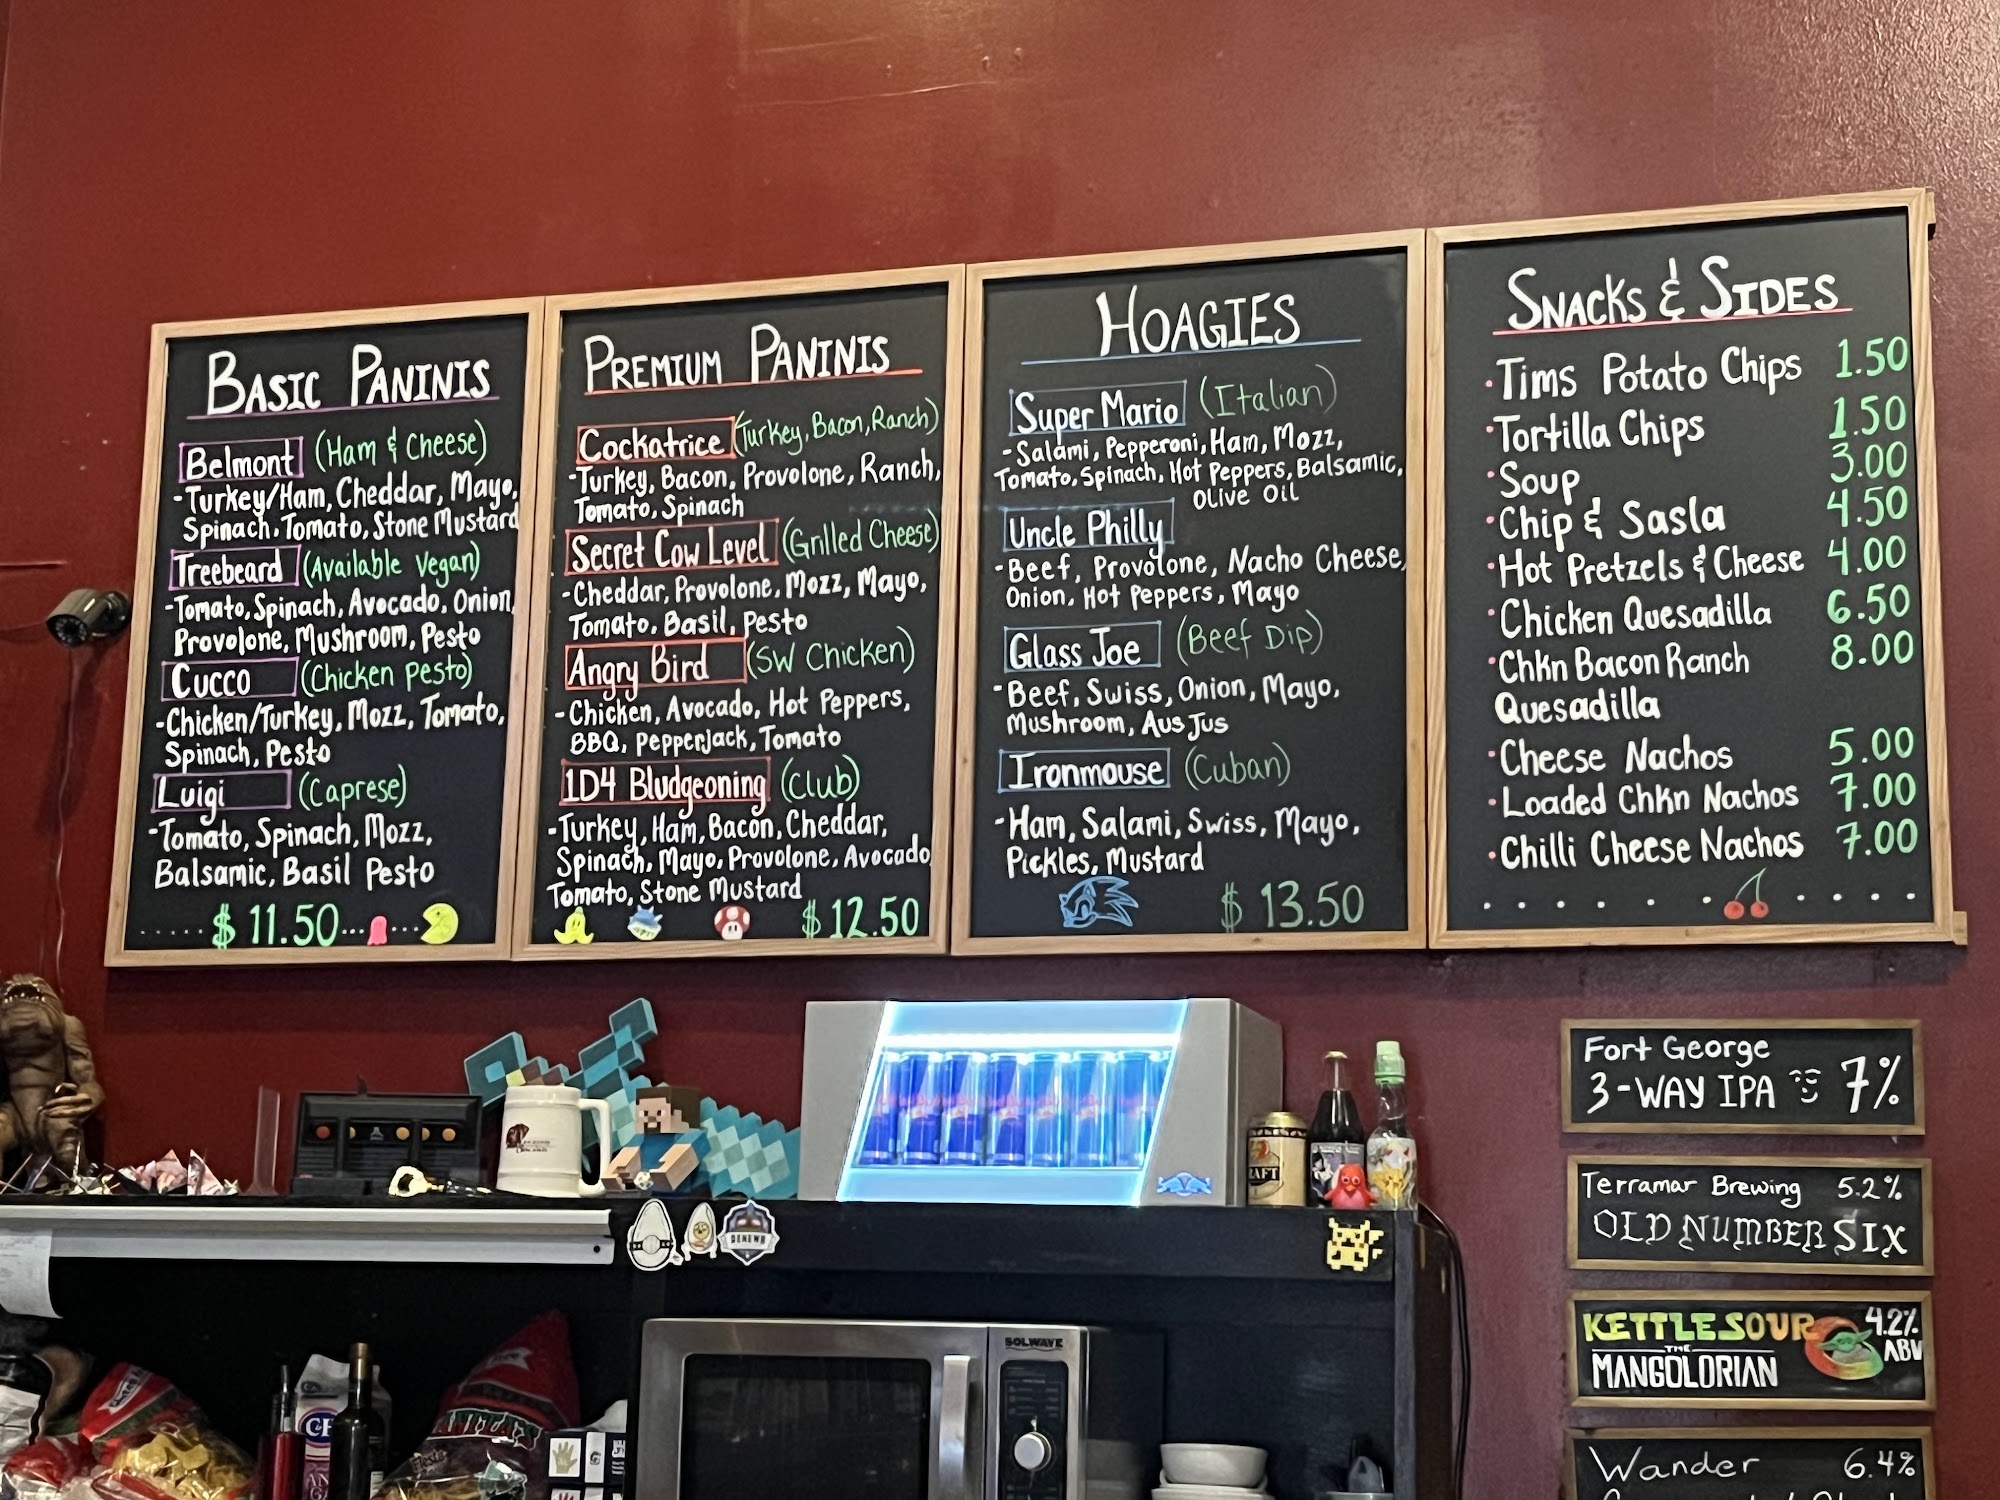 BASIC PANINIS
Belmont (Ham & Cheese)
-Turkey/Ham, Cheddar, Mayo,
Spinach, Tomato, Stone Mustard
Treebeard (Available Vegan)
-Tomato, Spinach, Avocado, Onion,
Provolone, Mushroom, Pesto
Cucco (Chicken Pesto)
-Chicken/Turkey, Mozz, Tomato,
Spinach, Pesto
Luigi (Caprese)
-Tomato, Spinach, Mozz,
Balsamic, Basil Pesto
$11.50
PREMIUM PANINIS
Cockatrice (Turkey, Bacon, Ranch)
-Turkey, Bacon, Provolone, Ranch,
Tomato, Spinach
Secret Cow Level (Grilled Cheese)
-Cheddar, Provolone, Mozz, Mayo,
Tomato, Basil, Pesto
Angry Bird (SW Chicken)
-Chicken, Avocado, Hot Peppers,
BBQ, Pepperjack, Tomato
1D4 Bludgeoning (Club)
-Turkey, Ham, Bacon, Cheddar,
Spinach, Mayo, Provolone, Avocado
Tomato, Stone Mustard
$12.50
HOAGIES
Super Mario (Italian)
-Salami, Pepperoni, Ham, Mozz,
Tomato, Spinach, Hot Peppers, Balsamic,
Olive Oil
Uncle Philly
-Beef, Provolone, Nacho Cheese,
Onion, Hot Peppers, Mayo
Glass Joe (Beef Dip)
-Beef, Swiss, Onion, Mayo,
Mushroom, Aus Jus
Ironmouse (Cuban)
-Ham, Salami, Swiss, Mayo,
Pickles, Mustard
$13.50
SNACKS & SIDES
·Tims Potato Chips 1.50
·Tortilla Chips 1.50
·Soup 3.00
·Chip & Sasla 4.50
·Hot Pretzels & Cheese 4.00
·Chicken Quesadilla 6.50
·Chkn Bacon Ranch 8.00
Quesadilla
·Cheese Nachos 5.00
·Loaded Chkn Nachos 7.00
·Chilli Cheese Nachos 7.00
Fort George
3-WAY IPA 7%
Terramar Brewing 5.2%
OLD NUMBER SIX
KETTLE SOUR 4.2%
THE ABV
MANGOLORIAN
Wander 6.4%
SOLWAVE